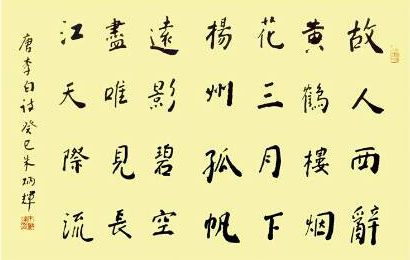 故人西辭
黄鶴樓烟
花三月下
楊州孤帆
遠影碧空
盡唯見長
江天際流
唐李白詩癸巳朱炳輝